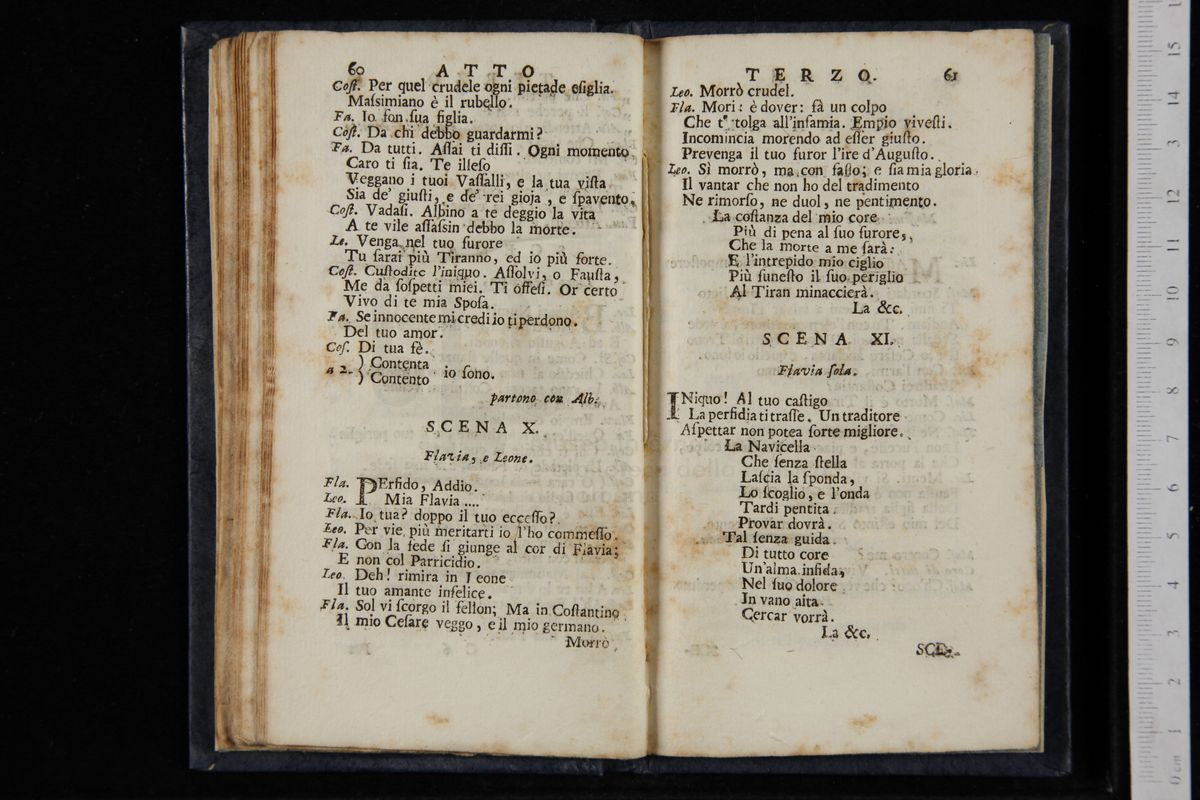 60 ATTO
Cost. Per quel crudele ogni pietade esiglia.
Massimiano è il rubello.
Fa. Io son sua figlia.
Cost. Da chi debbo guardarmi?
Fa. Da tutti. Assai ti dissi. Ogni momento
Caro ti sia. Te illeso
Veggano i tuoi Vassalli, e la tua vista
Sia de' giusti, e de' rei gioja, e spavento.
Cost. Vadasi. Albino a te deggio la vita
A te vile assassin debbo la morte.
Le. Venga nel tuo furore
Tu sarai più Tiranno, ed io più forte.
Cost. Custodite l'iniquo. Assolvi, o Fausta,
Me da sospetti miei. Ti offesi. Or certo
Vivo di te mia Sposa.
Fa. Se innocente mi credi io ti perdono.
Del tuo amor.
Cos. Di tua fè.
a 2. ) Contenta
) Contento io sono.
partono con Alb.
SCENA X.
Flavia, e Leone.
Fla. PErfido, Addio.
Leo. Mia Flavia ....
Fla. Io tua? doppo il tuo eccesso?
Leo. Per vie più meritarti io l'ho commesso.
Fla. Con la fede si giunge al cor di Flavia;
E non col Parricidio.
Leo. Deh! rimira in Leone
Il tuo amante infelice.
Fla. Sol vi scorgo il fellon; Ma in Costantino
Il mio Cesare veggo, e il mio germano.
Morrò
TERZO. 61
Leo. Morrò crudel.
Fla. Mori: è dover: fà un colpo
Che te tolga all'infamia. Empio vivesti.
Incomincia morendo ad esser giusto.
Prevenga il tuo furor l'ire d'Augusto.
Leo. Sì morrò, ma con fasto; e sia mia gloria
Il vantar che non ho del tradimento
Ne rimorso, ne duol, ne pentimento.
La costanza del mio core
Più di pena al suo furore,
Che la morte a me sarà:
E l'intrepido mio ciglio
Più funesto il suo periglio
Al Tiran minaccierà.
La &c.
SCENA XI.
Flavia sola.
INiquo! Al tuo castigo
La perfidia ti trasse. Un traditore
Aspettar non potea sorte migliore.
La Navicella
Che senza stella
Lascia la sponda,
Lo scoglio, e l'onda
Tardi pentita
Provar dovrà.
Tal senza guida
Di tutto core
Un'alma infida,
Nel suo dolore
In vano aita
Cercar vorrà.
La &c.
SCE-